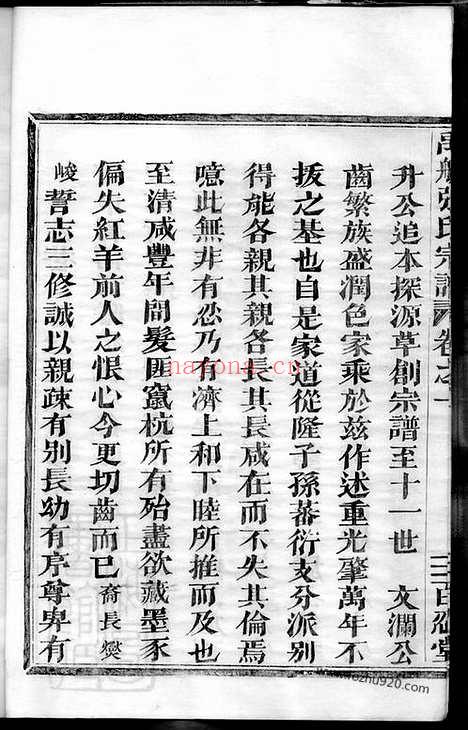 升公追本探源草創宗譜至十一世　文瀾公
齒繁族盛潤色家乘於兹作述重光肇萬年不
拔之基也自是家道從隆子孫蕃衍支分派别
得能各親其親各長其長咸在而不失其倫焉
噫此無非有忍乃有濟上和下睦所推而及也
至清咸豐年間髮匪竄杭所有殆盡欲藏墨豕
偏失紅羊前人之恨心今更切齒而已裔長爕
峻誓志三修誠以親疎有别長幼有序尊卑有
張氏宗譜 卷之一
百忍堂
nagona.cn
www.yezhu920.com